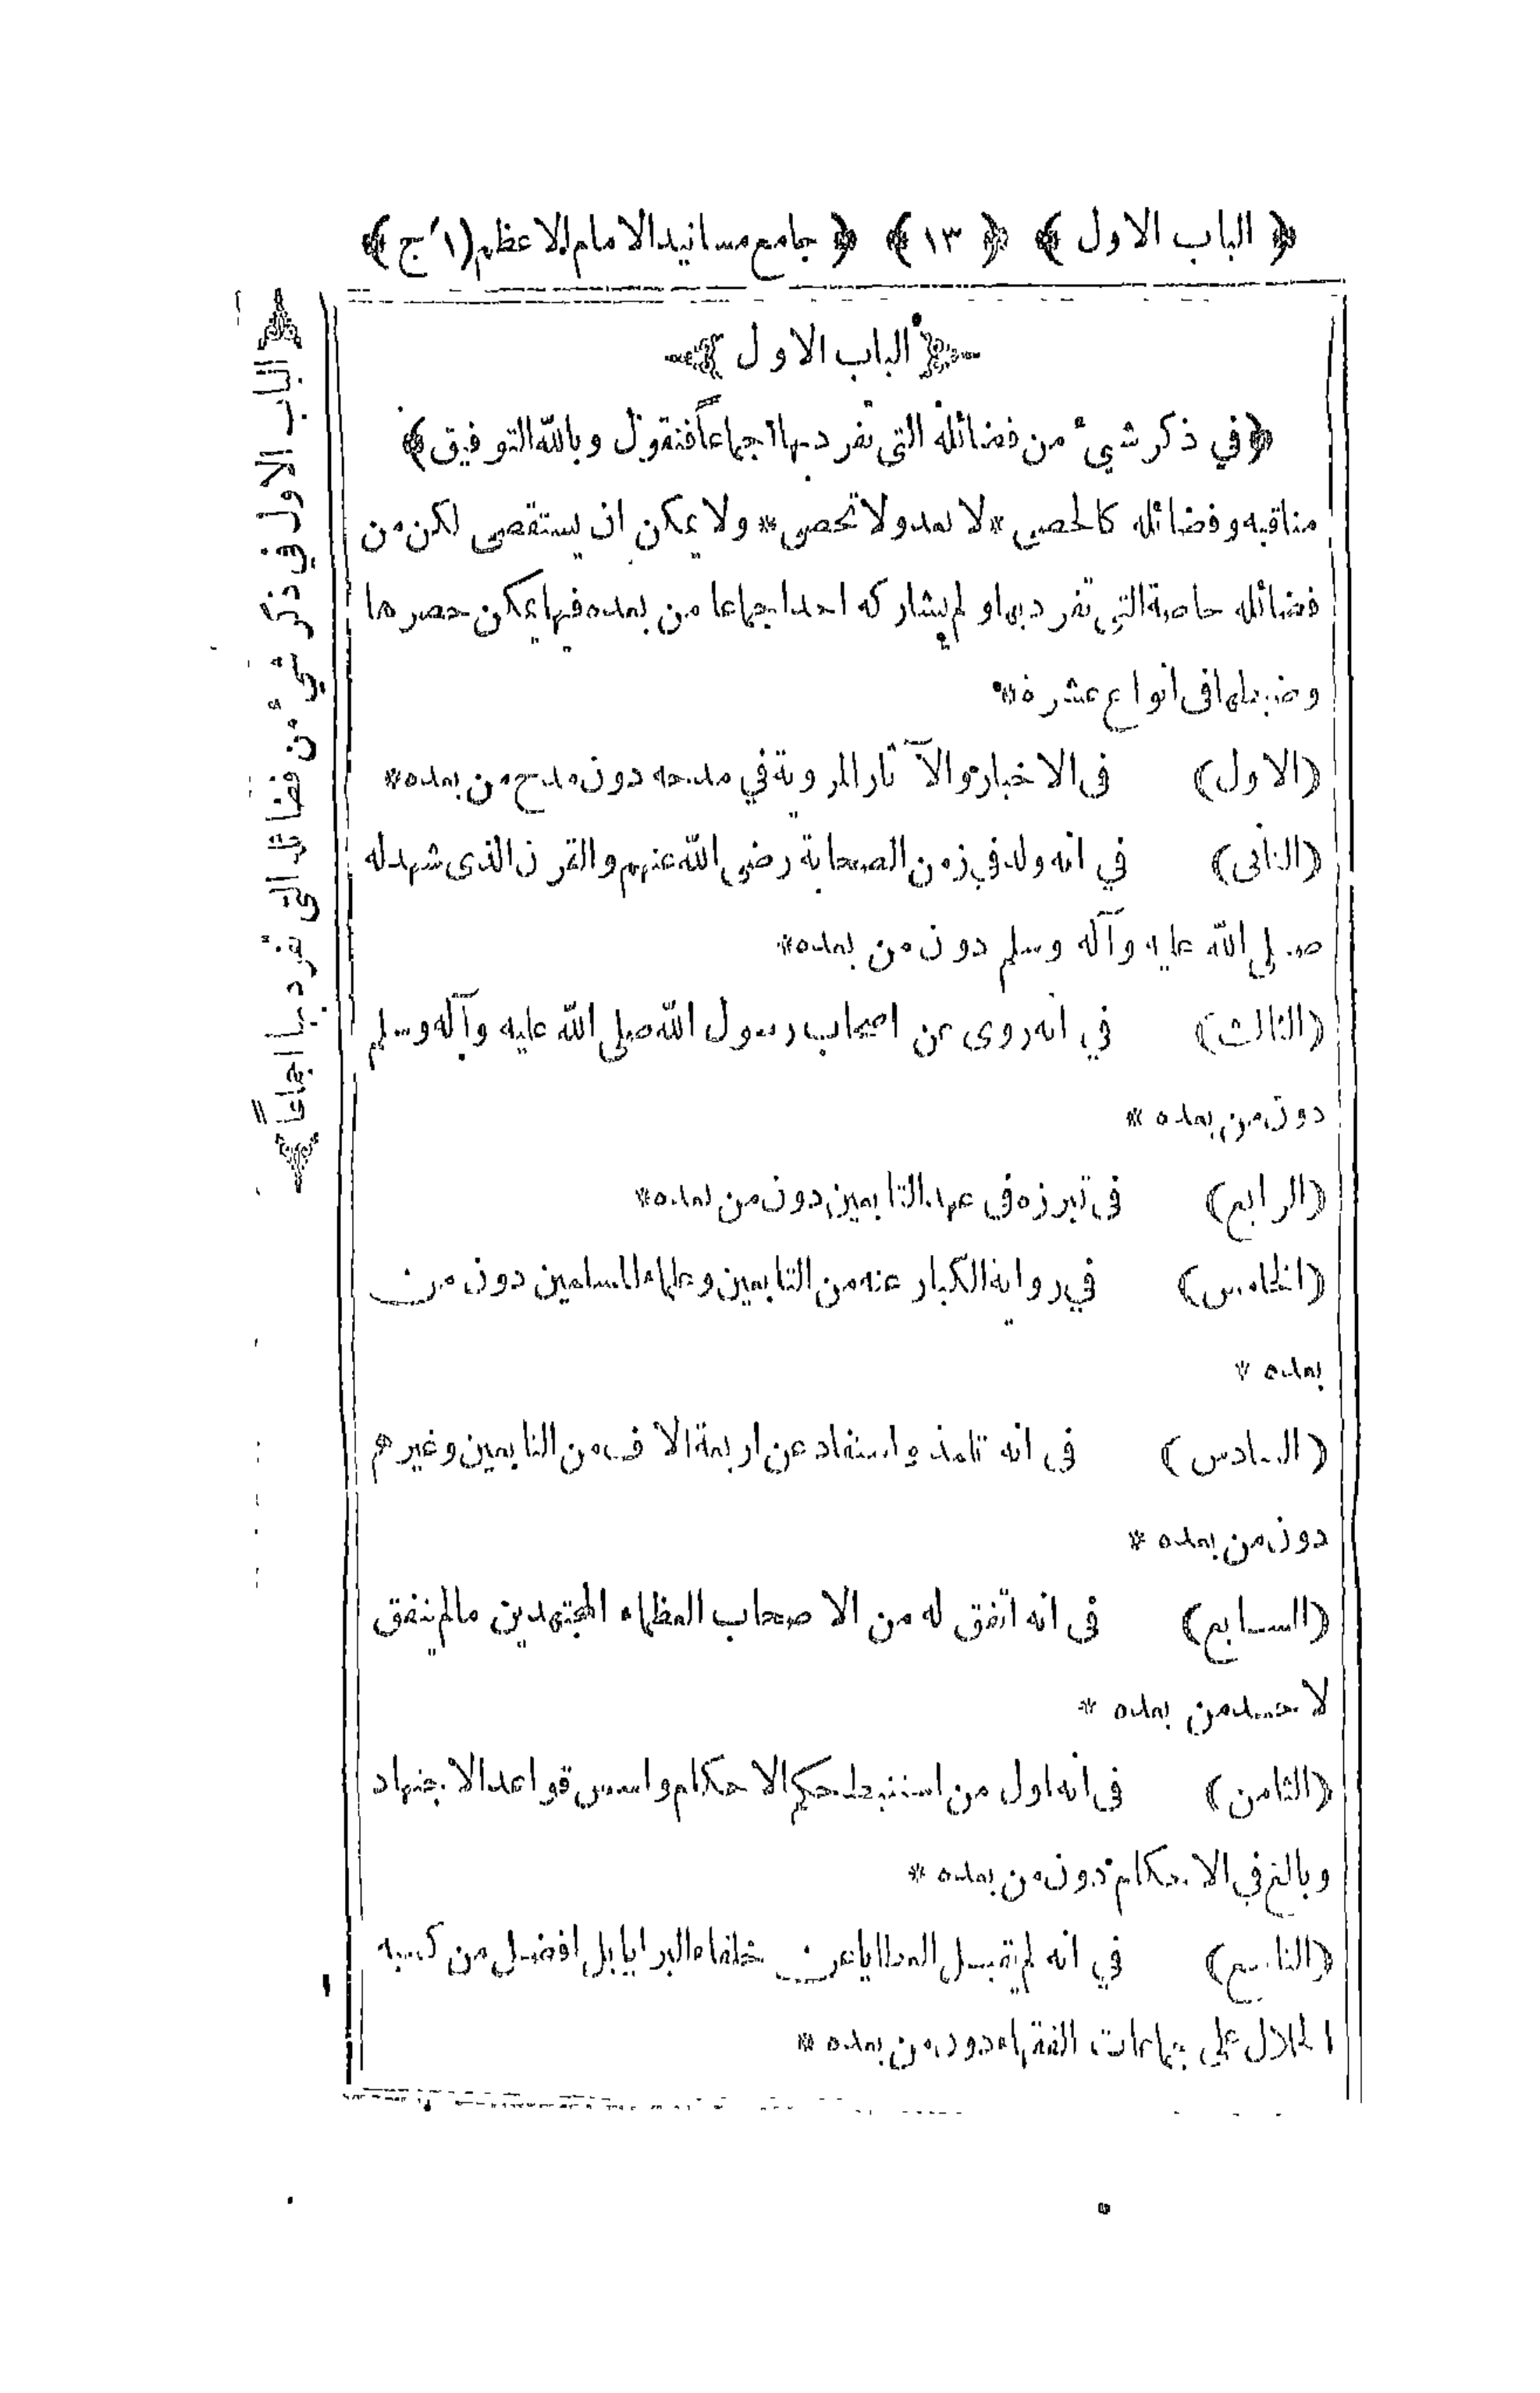 ﴿ الباب الاول ﴾ ﴿ ١٣ ﴾ ﴿ جامع مسانيد الامام الاعظم (١ ج ﴾
﴿ الباب الاول ﴾
﴿ في ذكر شيء من فضائله التي تفرد بها اجماعاً فنقول وبالله التوفيق ﴾
مناقبه وفضائله كالحصى * لا تعد ولا تحصى * ولا يمكن ان يستقصى لكن من
فضائله خاصة التي تفرد بها ولم يشاركه احد اجماعا من بعده فيها يمكن حصرها
وضبطها في انواع عشرة *
(الاول) في الاخبار والآثار المروية في مدحه دون مدح من بعده *
(الثاني) في انه ولد في زمن الصحابة رضى الله عنهم والقرن الذى شهد له
صلى الله عليه وآله وسلم دون من بعده *
(الثالث) في انه روى عن اصحاب رسول الله صلى الله عليه وآله وسلم
دون من بعده *
(الرابع) فى تبرزه فى عهد التابعين دون من بعده *
(الخامس) في رواية الكبار عنه من التابعين وعلماء المسلمين دون من
بعده *
(السادس) فى انه تلمذ واستفاد عن اربعة الاف من التابعين وغيرهم
دون من بعده *
(السابع) فى انه اتفق له من الاصحاب العظماء المجتهدين ما لم يتفق
لاحد من بعده *
(الثامن) فى انه اول من استنبط حكم الاحكام واسس قواعد الاجتهاد
وبالغ في الاحكام دون من بعده *
(التاسع) في انه لم يقبل العطايا عن خلفاء البرايا بل افضل من كسبه
الحلال على جماعات الفقهاء دون من بعده *
﴿ الباب الاول في ذكر شيء من فضائله التي تفرد بها اجماعاً ﴾